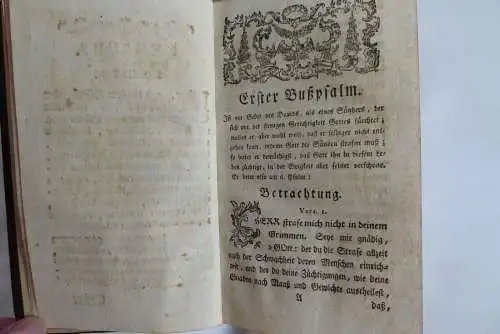 Erster Bußpsalm.
Ist ein Gebet des Davids, als eines Sünders, der
sich vor der strengen Gerechtigkeit Gottes fürchtet;
weilen er aber wohl weiß, daß er selbiger nicht ent-
gehen kann, indeme Gott die Sünden strafen muß;
so bittet er demüthigst, daß Gott ihn in diesem Le-
ben züchtige, in der Ewigkeit aber seiner verschone.
Er betet also am 6. Psalm:
Betrachtung.
Vers. 1.
HERR strafe mich nicht in deinem
Grimmen. Seye mir gnädig,
o GOtt: der du die Strafe allzeit
nach der Schwachheit deren Menschen einrich-
test, und der du deine Züchtigungen, wie deine
Gnaden nach Maaß und Gewichte austheilest,
A
daß,